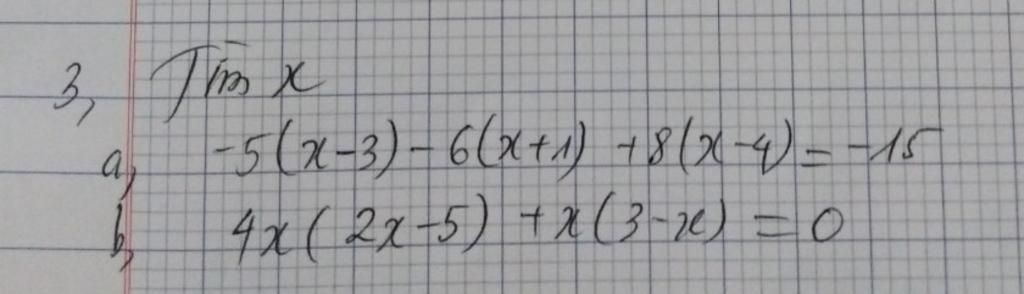 3, Tìm x
a, -5(x-3) - 6(x+1) + 8(x-4) = -15
b, 4x(2x-5) + x(3-x) = 0